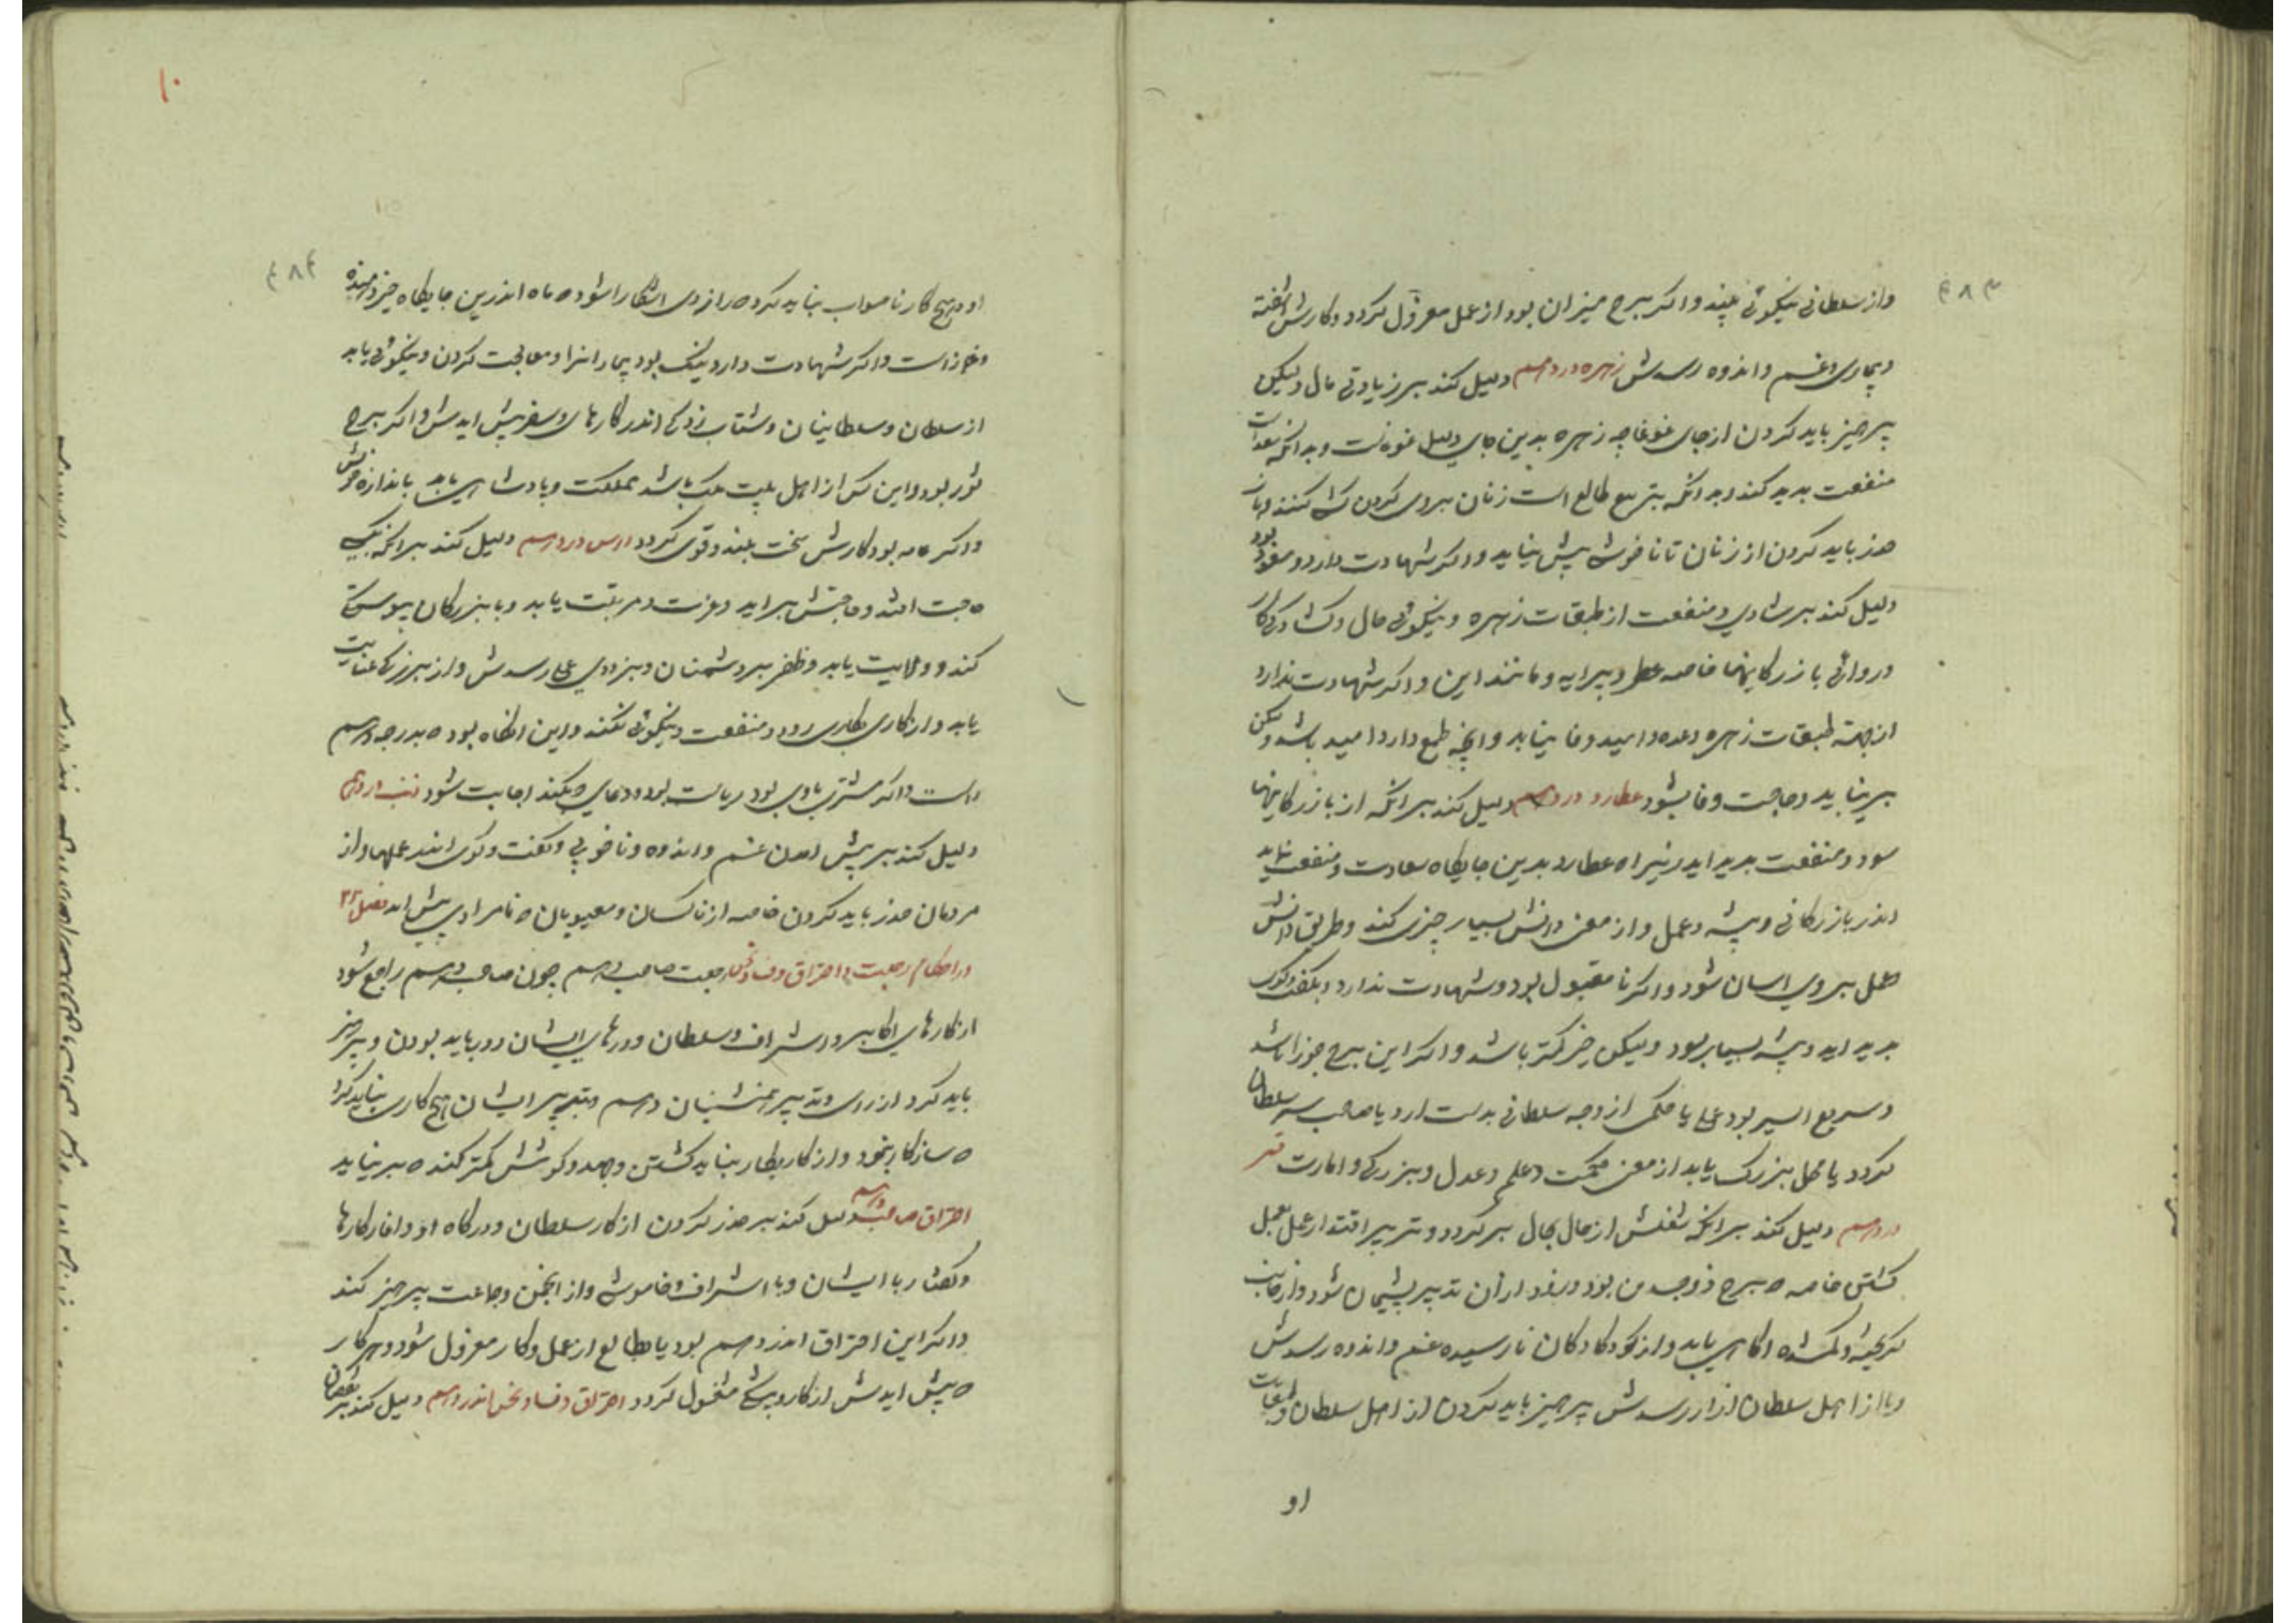 ۴۸۳
واز سلطانی نیکوئی بیند واکر ببرج میزان بود از عمل معزول کردد وکارش اشفته
وبیماری وغم واندوه رسدش زهره در دهم دلیل کند بر زیادتی مال ولیکن
پرهیز باید کردن از جای غوغا چه زهره بدین جای دلیل غوغاست وبدانکه سعد است
منفعت پدید کند وبدانکه بتربیع طالع است زنان بروی کردن کشی کنند
حذر باید کردن از زنان تا ناخوشی پیش نیاید واکر شهادت دارد ومقبول بود
دلیل کند بر شادی ومنفعت از طبقات زهره ونیکوئی حال وکشادکی کار
وروائی بازرکانیها خاصه عطر وپیرایه ومانند این واکر شهادت ندارد
از جهة طبقات زهره وعده وامید وفا نیاید وانچه طمع دارد امید باشد ولیکن
برنیاید وحاجت وفا نشود عطارد در دهم دلیل کند بر انکه از بازرکانیها
سود ومنفعت پدید اید زیرا که عطارد بدین جایکاه سعادت ومنفعت نماید
اندر بازرکانی وپیشه وعمل واز معنی دانش بسیار چیزی کند وطریق دانش
وعمل بروی اسان شود واکر نا مقبول بود وشهادت ندارد وبکفت وکوی
پدید اید وپیشه بسیار بود ولیکن خیر کمتر باشد واکر این برج جوزا باشد
وسریع السیر بود عملی یا حکمی از وجه سلطانی بدست ارد یا صاحب سر سلطان
کردد یا محل بزرک یابد از معنی حکمت وعلم وعدل وبزرکی وامارت قمر
در دهم دلیل کند بر انکه شغلش از حال بحال برکردد وتدبیر اقتدار عمل بعمل
کشتن خاصه که ببرج ذوجسدین بود وزود از ان تدبیر پشیمان شود واز غایب
کریخته وکمشده اکاهی یابد واز کودکان نارسیده غم واندوه رسدش
ویا از اهل سلطان ازار رسدش پرهیز باید کردن از اهل سلطان
او
۱۰
۴۸۴
او وهیچ کار ناصواب نباید کرد که رازوی اشکارا شود که ماه اندرین جایکاه
وغماز است واکر شهادت دارد نیک بود بیمار انرا ومعالجت کردن ونیکوئی یابد
از سلطان وسلطانیان وشتاب زدکی اندر کارهای وسفر پیش ایدش واکر ببرج
ثور بود واین کس از اهل بیت ملک باشد مملکت وپادشاهی یابد باندازه خویش
واکر عامه بود کارش سخت بلند وقوی کردد راس در دهم دلیل کند بر انکه نیک
حاجت افتد وحاجتش براید وعزت ومرتبت یابد وبا بزرکان پیوستکی
کند وولایت یابد وظفر بر دشمنان وبزودی عملی رسدش واز بزرکی عنایت
یابد واز کاری بکاری رود ومنفعت ونیکوئی کند واین انکاه بود که بدرجه دهم
راست واکر مشتری باوی بود ریاست بود ودعای که کند اجابت شود ذنب در دهم
دلیل کند بر پیش امدن غم واندوه وناخوبی وکفت وکوی اندر عملها واز
مردمان حذر باید کردن خاصه از ناکسان ومعیوبان که نامرادی پیش اید فصل ۳۲
در احکام رجعت واحتراق وفساد ونحس رجعت صاحب دهم چون صاحب دهم راجع شود
از کارهای اکابر واشراف وسلطان ودرهای ایشان دور باید بودن وپرهیز
باید کرد از رای وتدبیر همنشینان دهم وبتدبیر ایشان هیچ کاری نباید کرد
که سازکار نبود واز کار بکار نباید کشتن وجهد وکوشش کمتر کند که برنیاید
احتراق صاحب دهم دلیل کند بر حذر کردن از کار سلطان ودرکاه او واغاز کارها
وکفتار با ایشان وبا اشراف وخاموشی واز انجمن وجماعت پرهیز کند
واکر این احتراق اندر دهم بود یا بطالع از عمل وکار معزول شود وهر کار
که پیش ایدش از کار وپیشه مشغول کردد احتراق وفساد ونحس اندر دهم دلیل کند بر نقصان